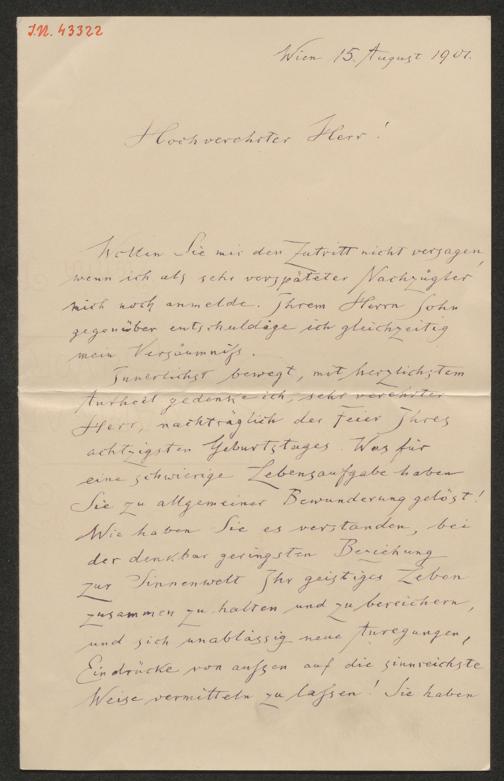 I.N. 43322
Wien 15. August 1901.
Hochverehrter Herr!
Wollen Sie mir den Zutritt nicht versagen,
wenn ich als sehr verspäteter Nachzügler
mich noch anmelde. Ihrem Herrn Sohn
gegenüber entschuldige ich gleichzeitig
mein Versäumniß.
Innerlichst bewegt, mit herzlichstem
Antheil gedenke ich, sehr verehrter
Herr, nachträglich der Feier Ihres
achtzigsten Geburtstages. Was für
eine schwierige Lebensaufgabe haben
Sie zu allgemeiner Bewunderung gelöst!
Wie haben Sie es verstanden, bei
der denkbar geringsten Beziehung
zur Sinnenwelt Ihr geistiges Leben
zusammen zu halten und zu bereichern,
und sich unablässig neue Anregungen,
Eindrücke von außen auf die sinnreichste
Weise vermitteln zu laßen! Sie haben